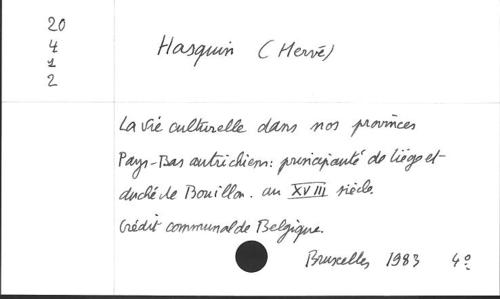 20
4
1
2
Hasquin (Hervé)
La vie culturelle dans nos provinces
Pays-Bas autrichiens: principauté de Liège et
duché de Bouillon. au XVIII siècle.
Crédit communal de Belgique.
Bruxelles 1983 4º